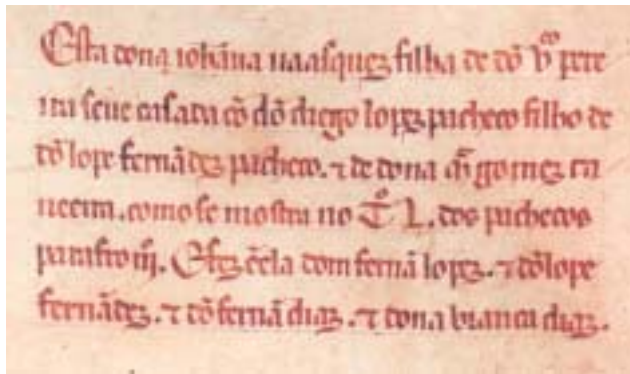 Esta dona iohãna uaasquez filha de dõ uco pere
ira seue casada cõ dõ diego lopez pacheco filho de
dõ lope fernãdez pacheco. ⁊ de dona mͣ gomez ta
ueira. como se mostra no To L. dos pachecos
parafro iij. E fez ẽ ela dom fernã lopez. ⁊ dõ lope
fernãdez. ⁊ dõ fernã diaz. ⁊ dona branca diaz.